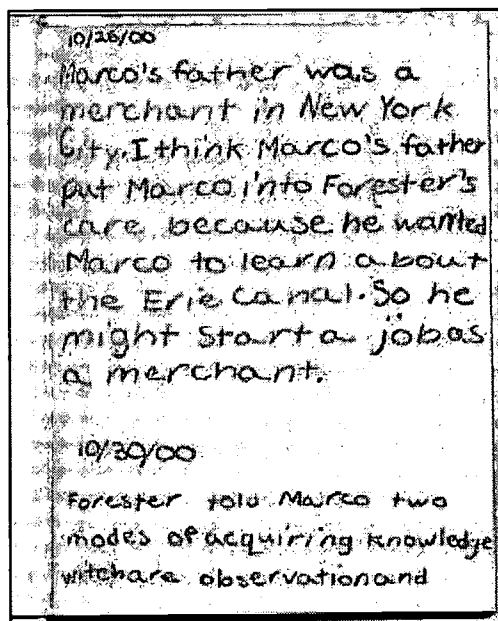 10/26/00
Marco's father was a
merchant in New York
City. I think Marco's father
put Marco into Forester's
care because he wanted
Marco to learn about
the Erie Canal. So he
might start a job as
a merchant.
10/30/00
Forester told Marco two
modes of acquiring knowledge
witch are observation and